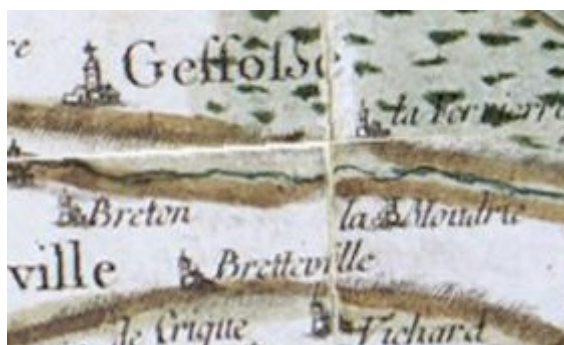 Geffosse
la Verrierre
Breton
la Moudrie
ville
Bretteville
de Crique
Vichard